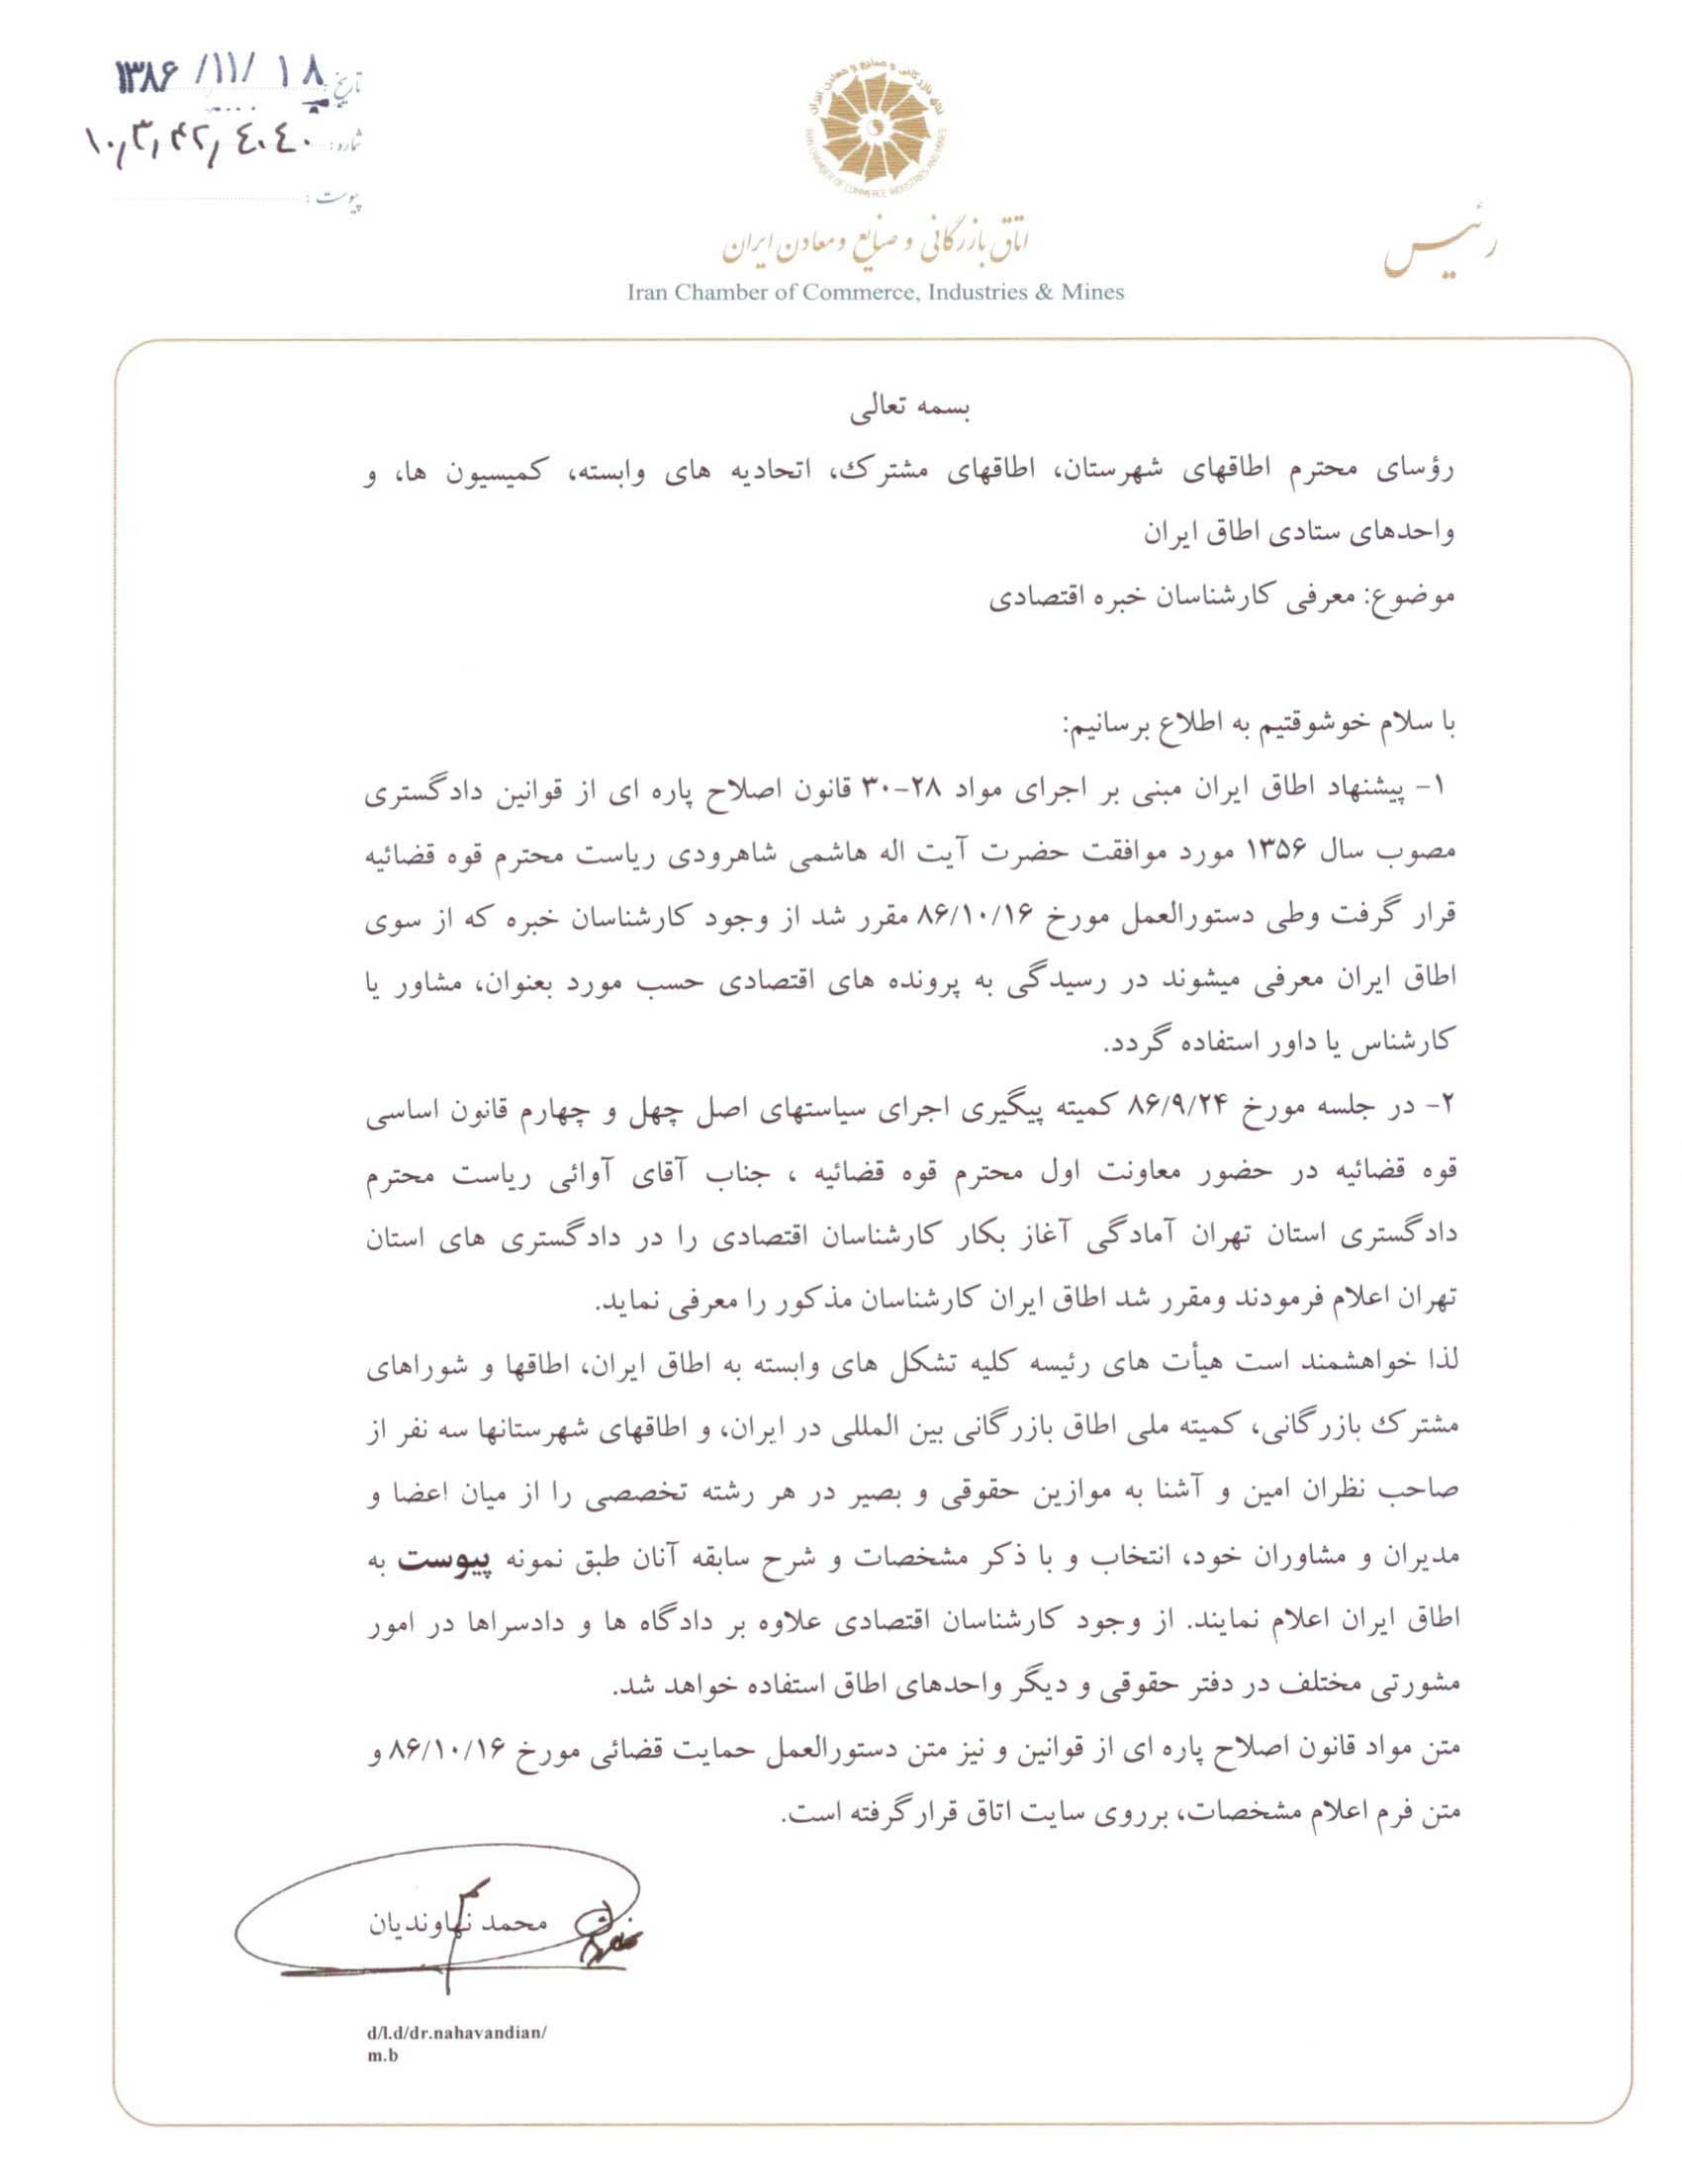 تاریخ: ۱۳۸۶/۱۱/۱۸
شماره: ۱۰,۳,۴۲,٤٠٤٠
پیوست:
اتاق بازرگانی و صنایع و معادن ایران
IRAN CHAMBER OF COMMERCE INDUSTRIES AND MINES
اتاق بازرگانی و صنایع و معادن ایران
Iran Chamber of Commerce, Industries & Mines
رئیس
بسمه تعالی
رؤسای محترم اطاقهای شهرستان، اطاقهای مشترک، اتحادیه های وابسته، کمیسیون ها، و
واحدهای ستادی اطاق ایران
موضوع: معرفی کارشناسان خبره اقتصادی
با سلام خوشوقتیم به اطلاع برسانیم:
۱- پیشنهاد اطاق ایران مبنی بر اجرای مواد ۲۸-۳۰ قانون اصلاح پاره ای از قوانین دادگستری
مصوب سال ۱۳۵۶ مورد موافقت حضرت آیت اله هاشمی شاهرودی ریاست محترم قوه قضائیه
قرار گرفت وطی دستورالعمل مورخ ۸۶/۱۰/۱۶ مقرر شد از وجود کارشناسان خبره که از سوی
اطاق ایران معرفی میشوند در رسیدگی به پرونده های اقتصادی حسب مورد بعنوان، مشاور یا
کارشناس یا داور استفاده گردد.
۲- در جلسه مورخ ۸۶/۹/۲۴ کمیته پیگیری اجرای سیاستهای اصل چهل و چهارم قانون اساسی
قوه قضائیه در حضور معاونت اول محترم قوه قضائیه ، جناب آقای آوائی ریاست محترم
دادگستری استان تهران آمادگی آغاز بکار کارشناسان اقتصادی را در دادگستری های استان
تهران اعلام فرمودند ومقرر شد اطاق ایران کارشناسان مذکور را معرفی نماید.
لذا خواهشمند است هیأت های رئیسه کلیه تشکل های وابسته به اطاق ایران، اطاقها و شوراهای
مشترک بازرگانی، کمیته ملی اطاق بازرگانی بین المللی در ایران، و اطاقهای شهرستانها سه نفر از
صاحب نظران امین و آشنا به موازین حقوقی و بصیر در هر رشته تخصصی را از میان اعضا و
مدیران و مشاوران خود، انتخاب و با ذکر مشخصات و شرح سابقه آنان طبق نمونه پیوست به
اطاق ایران اعلام نمایند. از وجود کارشناسان اقتصادی علاوه بر دادگاه ها و دادسراها در امور
مشورتی مختلف در دفتر حقوقی و دیگر واحدهای اطاق استفاده خواهد شد.
متن مواد قانون اصلاح پاره ای از قوانین و نیز متن دستورالعمل حمایت قضائی مورخ ۸۶/۱۰/۱۶ و
متن فرم اعلام مشخصات، برروی سایت اتاق قرارگرفته است.
محمد نهاوندیان
d/l.d/dr.nahavandian/
m.b